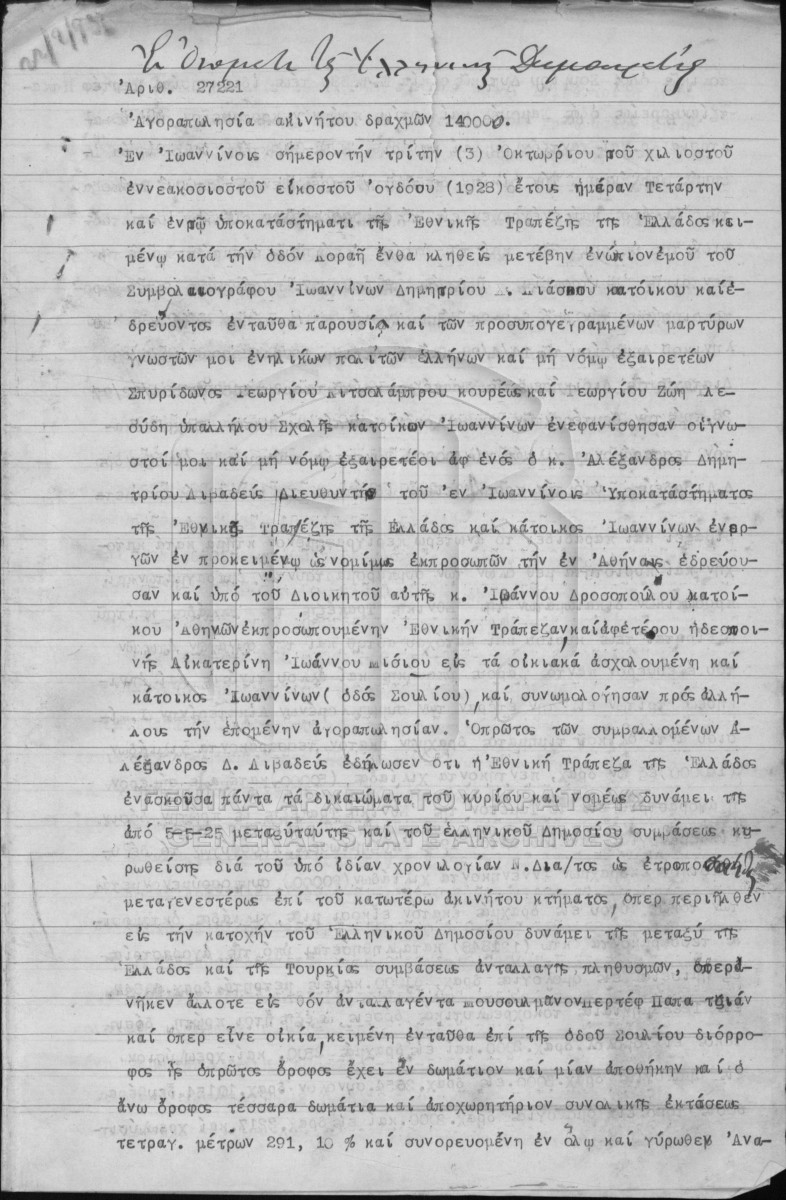 Ἐν Ὀνόματι τῆς Ἑλληνικῆς Δημοκρατίας
Ἀριθ. 27221
Ἀγοραπωλησία ακινήτου δραχμῶν 140000.
Ἐν Ἰωαννίνοις σήμερον τήν τρίτην (3) Ὀκτωβρίου τοῦ χιλιοστοῦ
ἐννεακοσιοστοῦ εἰκοστοῦ ὀγδόου (1928) ἔτους ἡμέραν Τετάρτην
καί ἐν τῷ ὑποκατάστηματι τῆς Ἐθνικῆς Τραπέζης τῆς Ἑλλάδος κει-
μένῳ κατά τήν ὁδόν Κοραῆ ἔνθα κληθείς μετέβην ἐνώπιον ἐμοῦ τοῦ
Συμβολαιογράφου Ἰωαννίνων Δημητρίου κατόικου καί ἑ-
δρεύοντος ἐνταῦθα παρουσίᾳ καί τῶν προσυπογεγραμμένων μαρτύρων
γνωστῶν μοι ἐνηλίκων πολιτῶν ἑλλήνων καί μή νόμῳ ἐξαιρετέων
Σπυρίδωνος Γεωργίου Κιτσολάμπρου κουρέως καί Γεωργίου Ζώη Λε-
σύδη ὑπαλλήλου Σχολῆς κατοίκων Ἰωαννίνων ἐνεφανίσθησαν οἱ γνω-
στοί μοι καί μή νόμῳ ἐξαιρετέοι ἀφ ἑνός ὁ κ. Ἀλέξανδρος Δημη-
τρίου Λιβαδεύς Διευθυντής τοῦ ἐν Ἰωαννίνοις Ὑποκατάστηματος
τῆς Ἐθνικῆς Τραπέζης τῆς Ελλάδος καί κάτοικος Ἰωαννίνων ἐνερ-
γῶν ἐν προκειμένῳ ὡς νομίμως ἐκπροσωπῶν τήν ἐν Ἀθήναις ἑδρεύου-
σαν καί ὑπό τοῦ Διοικητοῦ αὐτῆς κ. Ἰωάννου Δροσοπούλου κατοί-
κου Ἀθηνῶν ἐκπροσωπουμένην Ἐθνικήν Τράπεζαν, καί ἀφ ἑτέρου ἡ δεσποι-
νής Αἰκατερίνη Ἰωάννου Μίσιου εἰς τά οἰκιακά ἀσχολουμένη καί
κάτοικος Ἰωαννίνων( ὁδός Σουλίου), καί συνωμολόγησαν πρός ἀλλή-
λους τήν ἑπομένην ἀγοραπωλησίαν. Ὁ πρῶτος τῶν συμβαλλομένων Ἀ-
λέξανδρος Δ. Λιβαδεύς ἐδήλωσεν ὅτι ἡ Ἐθνική Τράπεζα τῆς Ἑλλάδος
ἐνασκοῦσα πάντα τά δικαιώματα τοῦ κυρίου καί νομέως δυνάμει τῆς
ἀπό 5-5-25 μεταξύ ταύτης καί τοῦ ἑλληνικοῦ Δημοσίου συμβάσεως κυ-
ρωθείσης διά τοῦ ὑπό ἰδίαν χρονολογίαν Ν.Δια/τος ὡς ἐτροποποιήθη
μεταγενεστέρως ἐπί τοῦ κατωτέρω ἀκινήτου κτήματος, ὅπερ περιῆλθεν
εἰς τήν κατοχήν τοῦ Ἑλληνικοῦ Δημοσίου δυνάμει τῆς μεταξύ τῆς
Ἑλλάδος καί τῆς Τουρκίας συμβάσεως ἀνταλλαγῆς πληθυσμῶν, ὅπερ ἀ-
νῆκεν ἄλλοτε εἰς τόν ἀνταλλαγέντα μουσουλμάνον Μερτέφ Παπα
καί ὅπερ εἶνε οἰκία, κειμένη ἐνταῦθα ἐπί τῆς ὁδοῦ Σουλίου διόρρο-
φος ἧς ὁ πρῶτος ὄροφος ἔχει ἕν δωμάτιον καί μίαν ἀποθήκην καί ὁ
ἄνω ὄροφος τέσσαρα δωμάτια καί ἀποχωρητήριον συνολικῆς ἐκτάσεως
τετραγ. μέτρων 291, 10 % καί συνορευομένη ἐν ὅλῳ καί γύρωθεν Ἀνα-
ΓΕΝΙΚΑ ΑΡΧΕΙΑ ΤΟΥ ΚΡΑΤΟΥΣ
GENERAL STATE ARCHIVES